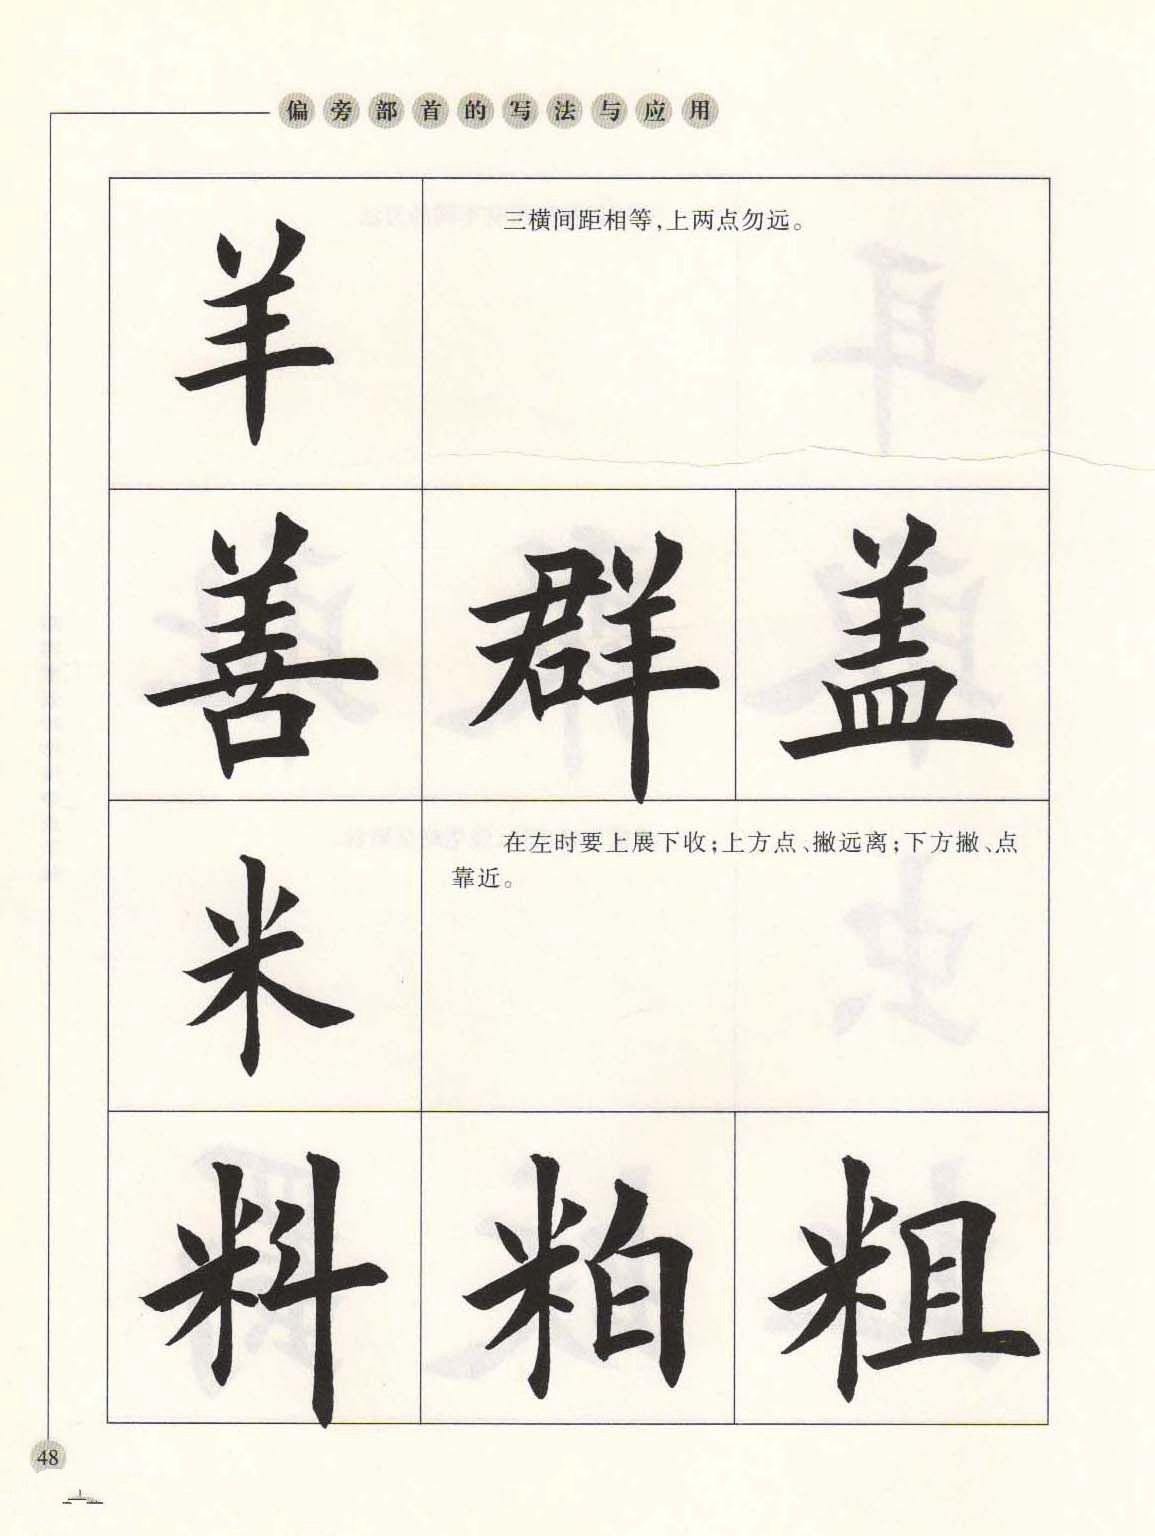 偏旁部首的写法与应用
羊
三横间距相等，上两点勿远。
善 群 盖
米
在左时要上展下收；上方点、撇远离；下方撇、点
靠近。
料 粕 粗
48